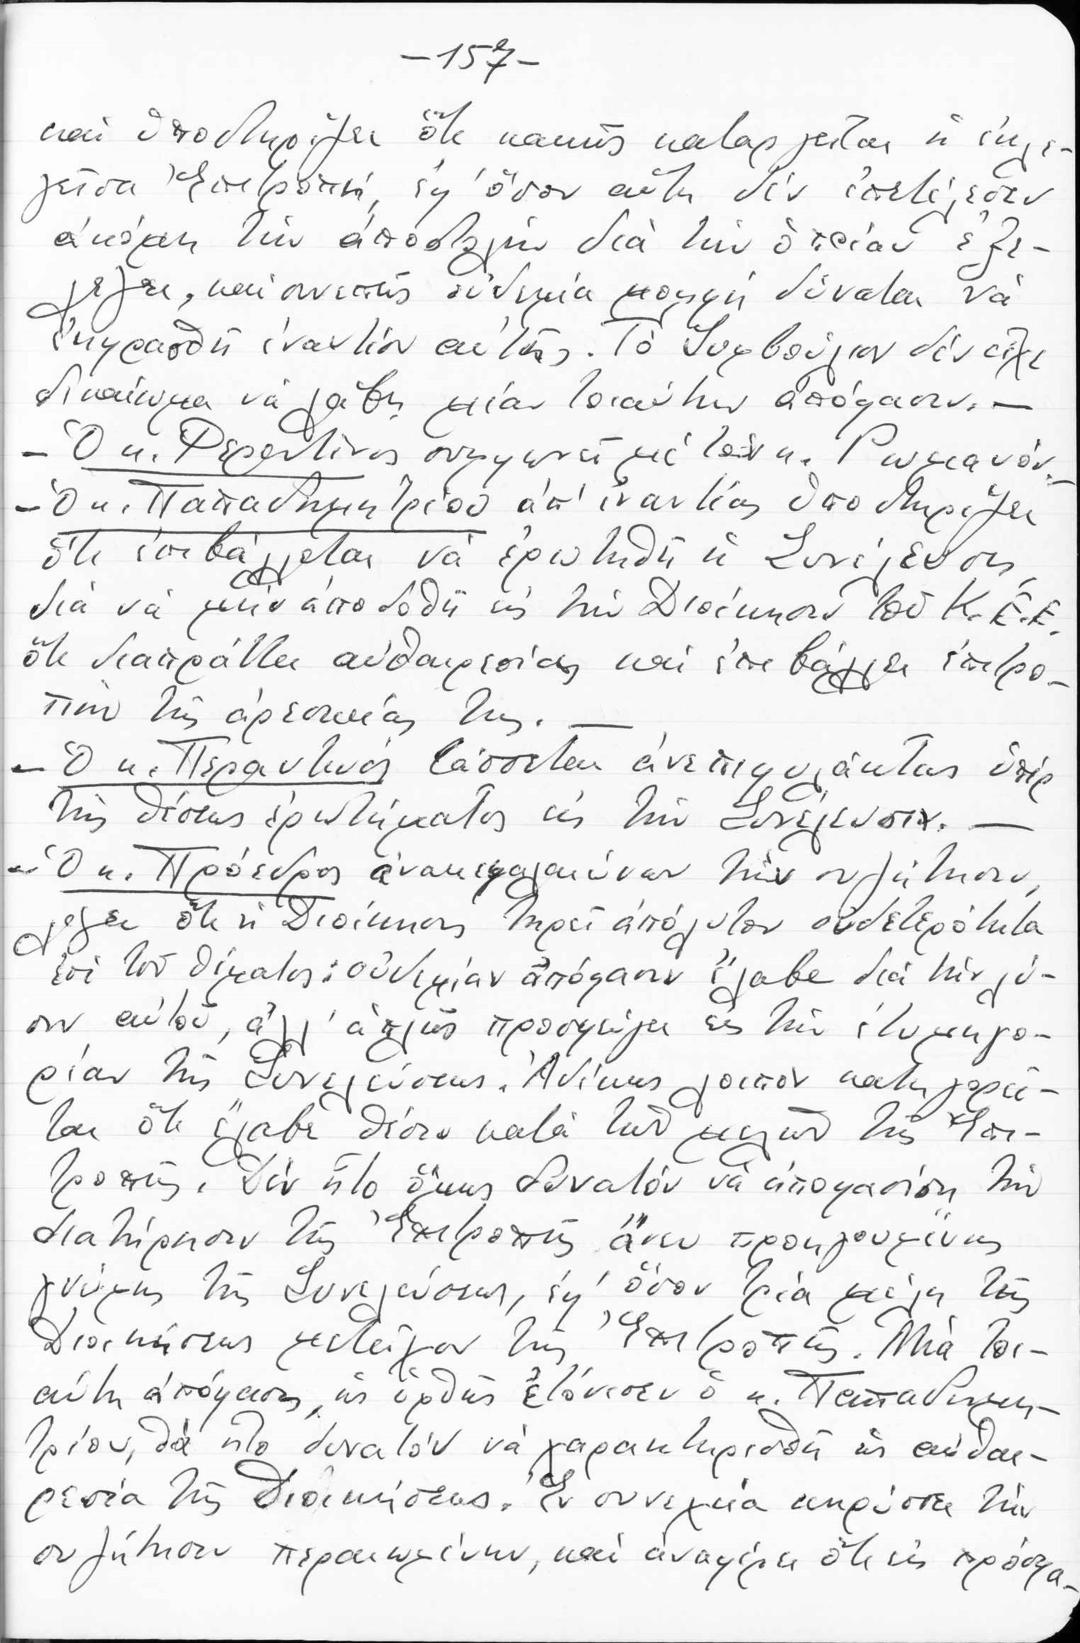 -157-
καὶ ὑποστηρίζει ὅτι κακῶς καταργεῖται ἡ ἐκλε-
γεῖσα Ἐπιτροπή, ἐφ' ὅσον αὕτη δέν ἐπετέλεσεν
ἀκόμη τὴν ἀποστολὴν διὰ τὴν ὁποίαν ἐξε-
λέγει, καὶ συνεπῶς οὐδεμία μομφὴ δύναται νὰ
ἐκφρασθῆ ἐναντίον αὐτῆς. Τὸ Συμβούλιον δέν εἶχε
δικαίωμα νὰ λάβῃ μίαν τοιαύτην ἀπόφασιν. —
- Ὁ κ. Φερεντῖνος συμφωνεῖ μὲ τὸν κ. Ρωμανόν. -
- Ὁ κ. Παπαδημητρίου ἀπ' ἐναντίας ὑποστηρίζει
ὅτι ἐπιβάλλεται νὰ ἐρωτηθῆ ἡ Συνέλευσις,
διὰ νὰ μὴν ἀποδοθῆ εἰς τὴν Διοίκησιν τοῦ Κ.Ε.Ε.
ὅτι διαπράττει αὐθαιρεσίας καὶ ἐπιβάλλει ἐπιτρο-
πὴν τῆς ἀρεσκείας της. —
- Ὁ κ. Περαντινός τάσσεται ἀνεπιφυλάκτως ὑπὲρ
τῆς θέσεως ἐρωτήματος εἰς τὴν Συνέλευσιν. —
- Ὁ κ. Πρόεδρος ἀνακεφαλαιώνων τὴν συζήτησιν,
λέγει ὅτι ἡ Διοίκησις τηρεῖ ἀπόλυτον οὐδετερότητα
ἐπὶ τοῦ θέματος: οὐδεμίαν ἀπόφασιν ἔλαβε διὰ τὴν λύ-
σιν αὐτοῦ, ἀλλ' ἁπλῶς προσφεύγει εἰς τὴν ἐτυμηγο-
ρίαν τῆς Συνελεύσεως. Ἀδίκως λοιπὸν κατηγορεῖ-
ται ὅτι ἔλαβε θέσιν κατὰ τῶν μελῶν τῆς Ἐπι-
τροπῆς. Δέν ἦτο ὅμως δυνατόν νὰ ἀποφασίσῃ τὴν
διατήρησιν τῆς Ἐπιτροπῆς ἄνευ προηγουμένης
γνώμης τῆς Συνελεύσεως, ἐφ' ὅσον τρία μέλη τῆς
Διοικήσεως μετεῖχον τῆς Ἐπιτροπῆς. Μιὰ τοι-
αύτη ἀπόφασις, ὡς ὀρθῶς ἐτόνισεν ὁ κ. Παπαδημη-
τρίου, θὰ ἦτο δυνατόν νὰ χαρακτηρισθῆ ὡς αὐθαι-
ρεσία τῆς Διοικήσεως. Ἐν συνεχεία κηρύσσει τὴν
συζήτησιν περαιωμένην, καὶ ἀναφέρει ὅτι εἰς πρόσφα-